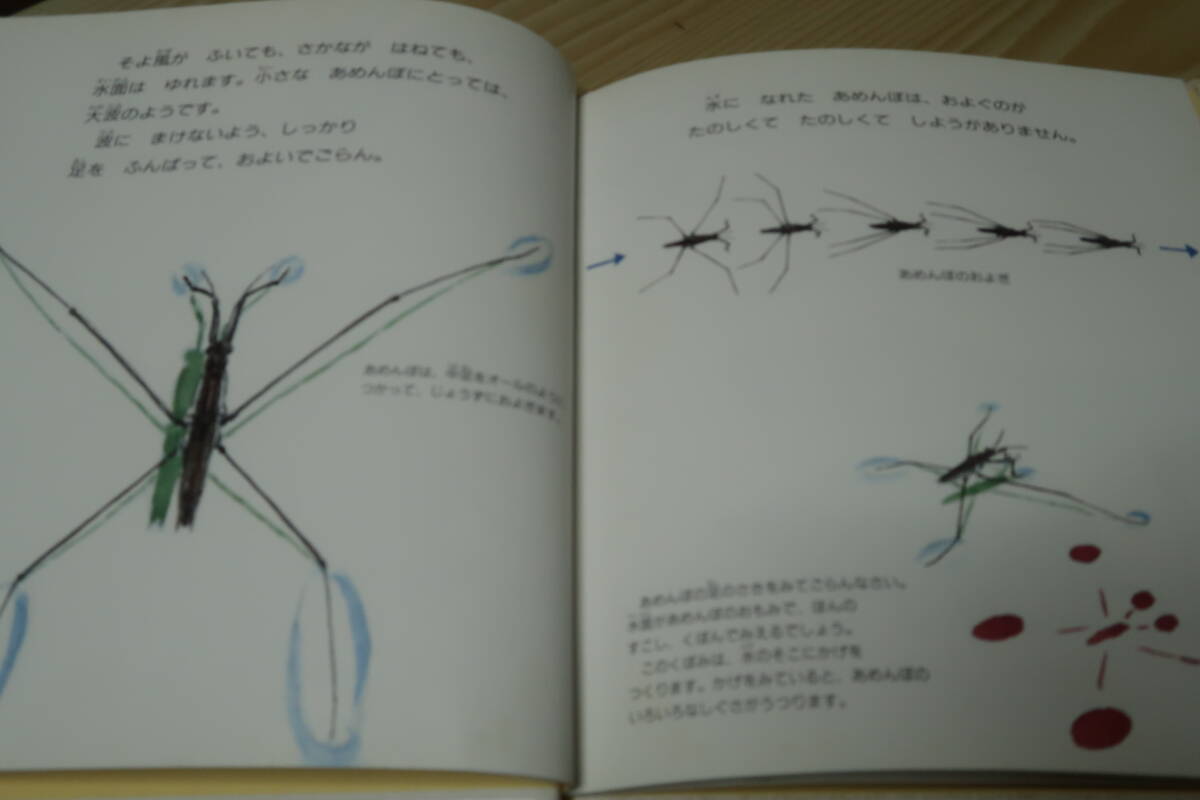 そよ風が ふいても、さかなが はねても、
水面は ゆれます。小さな あめんぼにとっては、
大波のようです。
波に まけないよう、しっかり
足を ふんばって、およいでごらん。
あめんぼは、中足をオールのように
つかって、じょうずにおよぎます。
水に なれた あめんぼは、およぐのが
たのしくて たのしくて しようがありません。
あめんぼのおよぎ
あめんぼの足のさきをみてごらんなさい。
水面があめんぼのおもみで、ほんの
すこし、くぼんでみえるでしょう。
このくぼみは、水のそこにかげを
つくります。かげをみていると、あめんぼの
いろいろなしぐさがうつります。